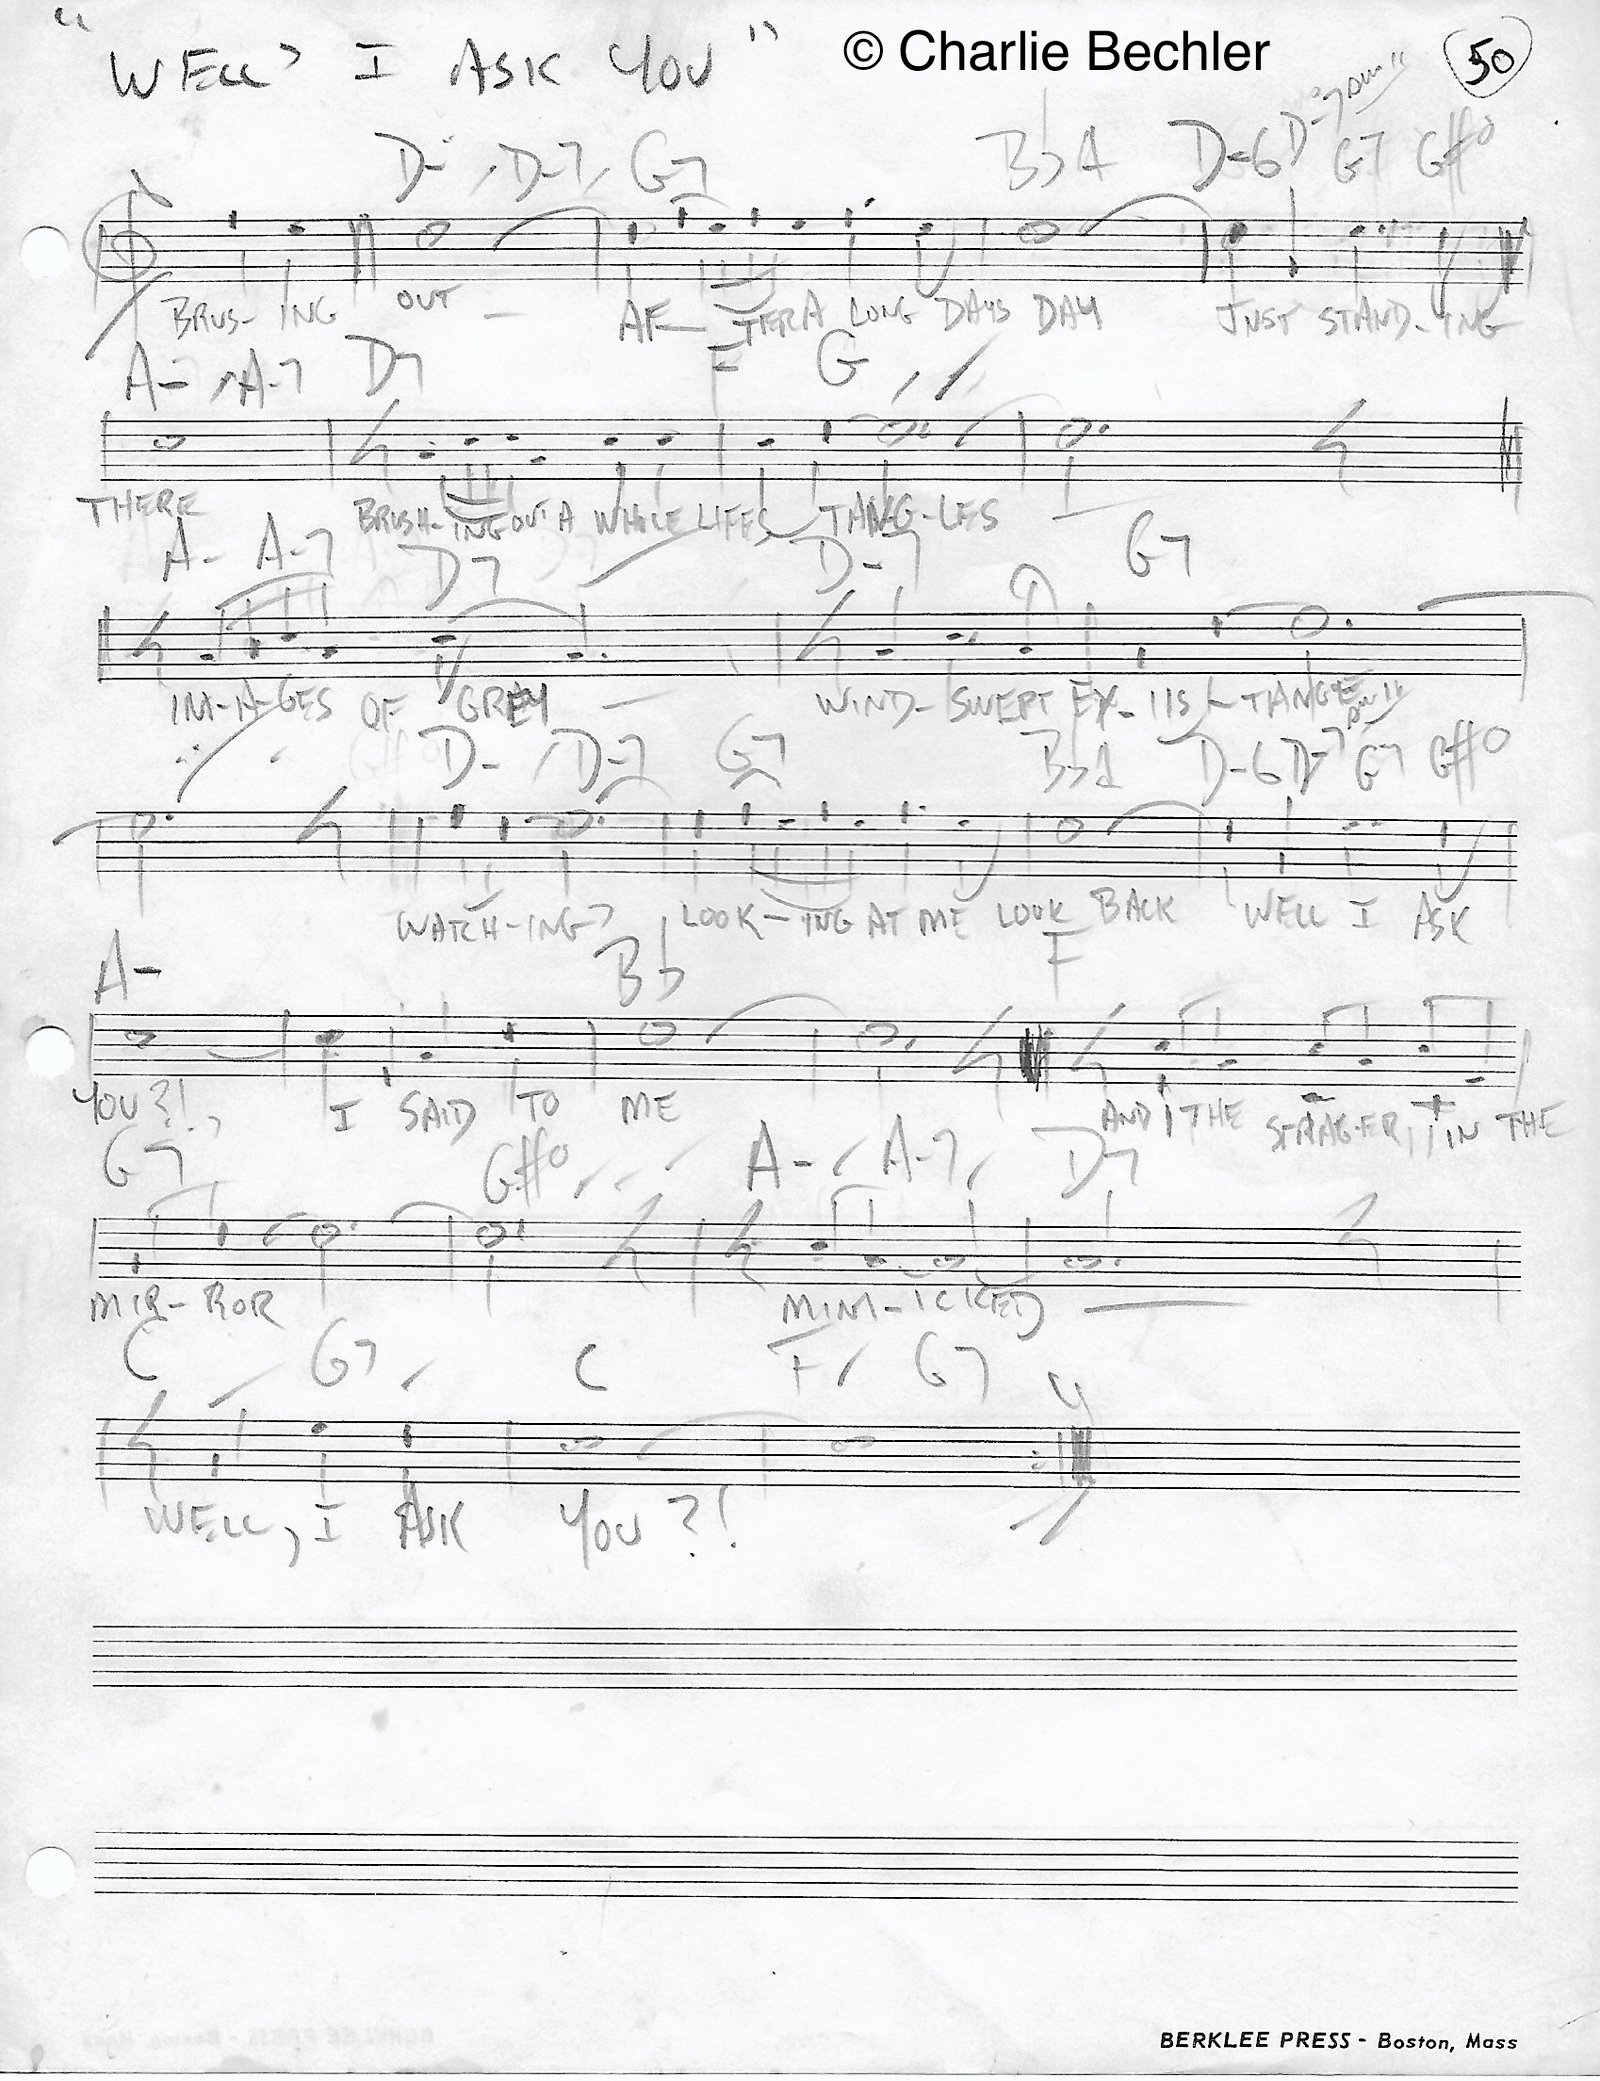 "WELL, I ASK YOU" © Charlie Bechler 50
D- / D-7 / G7 Bb1 D-6 D-7 G7 G#o
BRUS- ING OUT — AF— TER A LONG DAYS DAY JNST STAND- ING
A- / A-7 D7 F G / /
THERE BRUSH- ING OUT A WHOLE LIFES TANG-LES
A- A-7 D7 / D-7 G7
IM-A-GES OF GREY — WIND- SWEPT EX- IIS - TANCE
D- / D-7 G7 Bb1 D-6 D-7 G7 G#o
WATCH-ING, LOOK- ING AT ME LOOK BACK WELL I ASK
A- Bb F
YOU?!, I SAID TO ME AND THE STRAGER IN THE
G7 G#o / / / A- / A-7 / D7
MIR- ROR MIM-ICKED —
C / G7 / C F / G7
WELL, I ASK YOU?!
BERKLEE PRESS - Boston, Mass